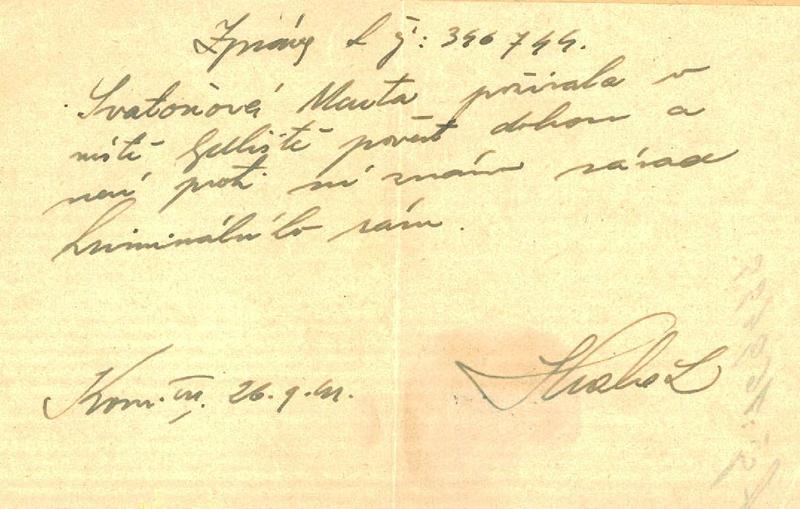 Zprávy k j: 346744.
Svatoňová Marta požívala v
místě bydliště pověst dobrou a
není proti ní znám závad
kriminálního rázu.
26.9.41.